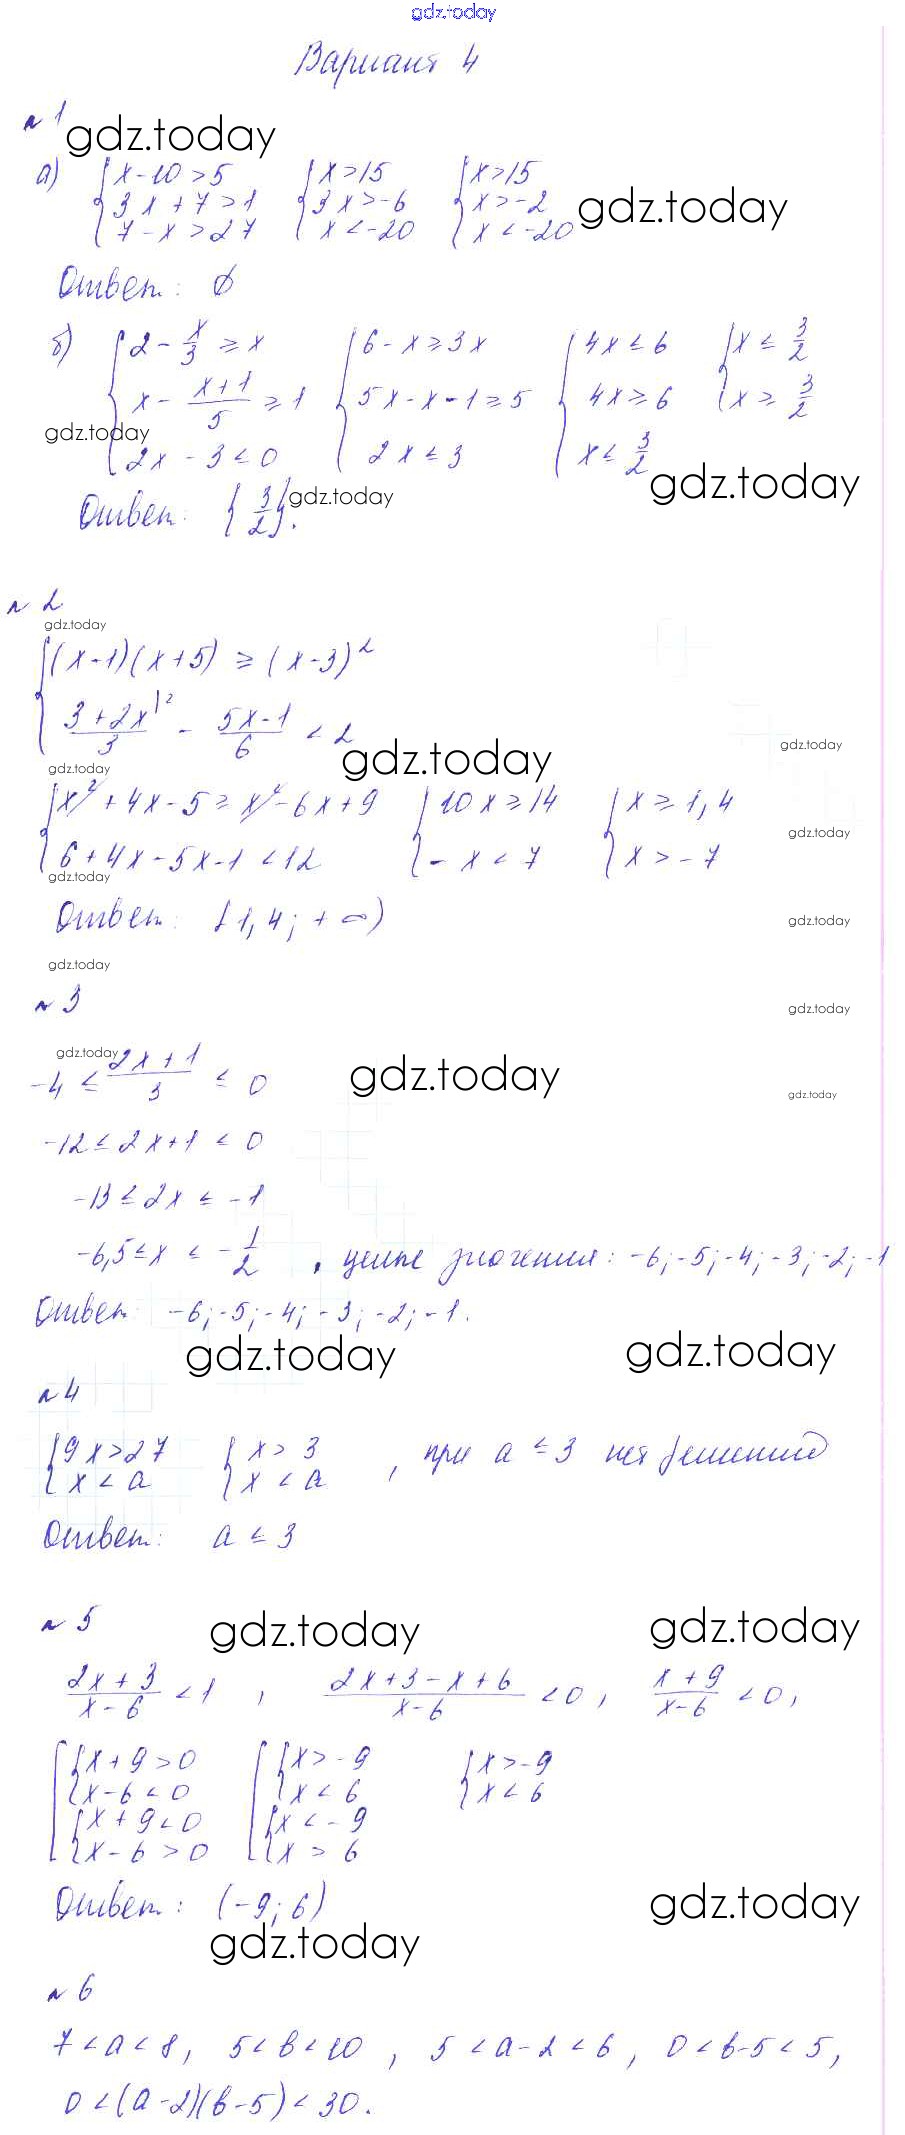 gdz.today
Вариант 4
№ 1
gdz.today
а) { x-10>5 { x>15 { x>15
3x+7>1 3x>-6 x>-2 gdz.today
7-x>27 x<-20 x<-20
Ответ: ∅
б) { 2 - x/3 ≥ x { 6-x≥3x { 4x≤6 { x ≤ 3/2
x - (x+1)/5 ≥ 1 5x-x-1≥5 4x≥6 x ≥ 3/2
gdz.today
2x-3≤0 2x≤3 x≤ 3/2
gdz.today
Ответ: {3/2}. gdz.today
№ 2
gdz.today
{ (x-1)(x+5) ≥ (x-3)²
(3+2x)/3 |² - (5x-1)/6 < 2
gdz.today gdz.today
gdz.today
{ x²+4x-5≥x²-6x+9 { 10x≥14 { x≥1,4
gdz.today
6+4x-5x-1<12 -x<7 x>-7
gdz.today
Ответ: [1,4; +∞)
gdz.today
gdz.today
№ 3
gdz.today
gdz.today
-4 ≤ (2x+1)/3 ≤ 0 gdz.today
gdz.today
-12≤2x+1≤0
-13≤2x≤-1
-6,5≤x≤-1/2, целые значения: -6;-5;-4;-3;-2;-1
Ответ: -6;-5;-4;-3;-2;-1.
gdz.today gdz.today
№ 4
{ 9x>27 { x>3 , при a≤3 нет решений
x<a x<a
Ответ: a≤3
№ 5 gdz.today gdz.today
(2x+3)/(x-6) <1 , (2x+3-x+6)/(x-6) <0, (x+9)/(x-6) <0,
[ { x+9>0 [ { x>-9 { x>-9
x-6<0 x<6 x<6
{ x+9<0 { x<-9
x-6>0 x>6
Ответ: (-9; 6) gdz.today
gdz.today
№ 6
7<a<8, 5<b<10 , 5<a-2<6, 0<b-5<5,
0<(a-2)(b-5)<30.